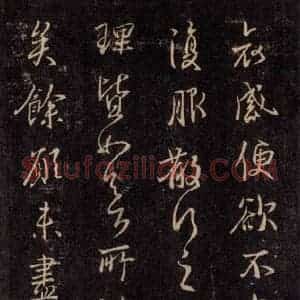 哀感便欲不
復服散行之
理皆如君所
矣餘願未盡
Shufaziliao.com